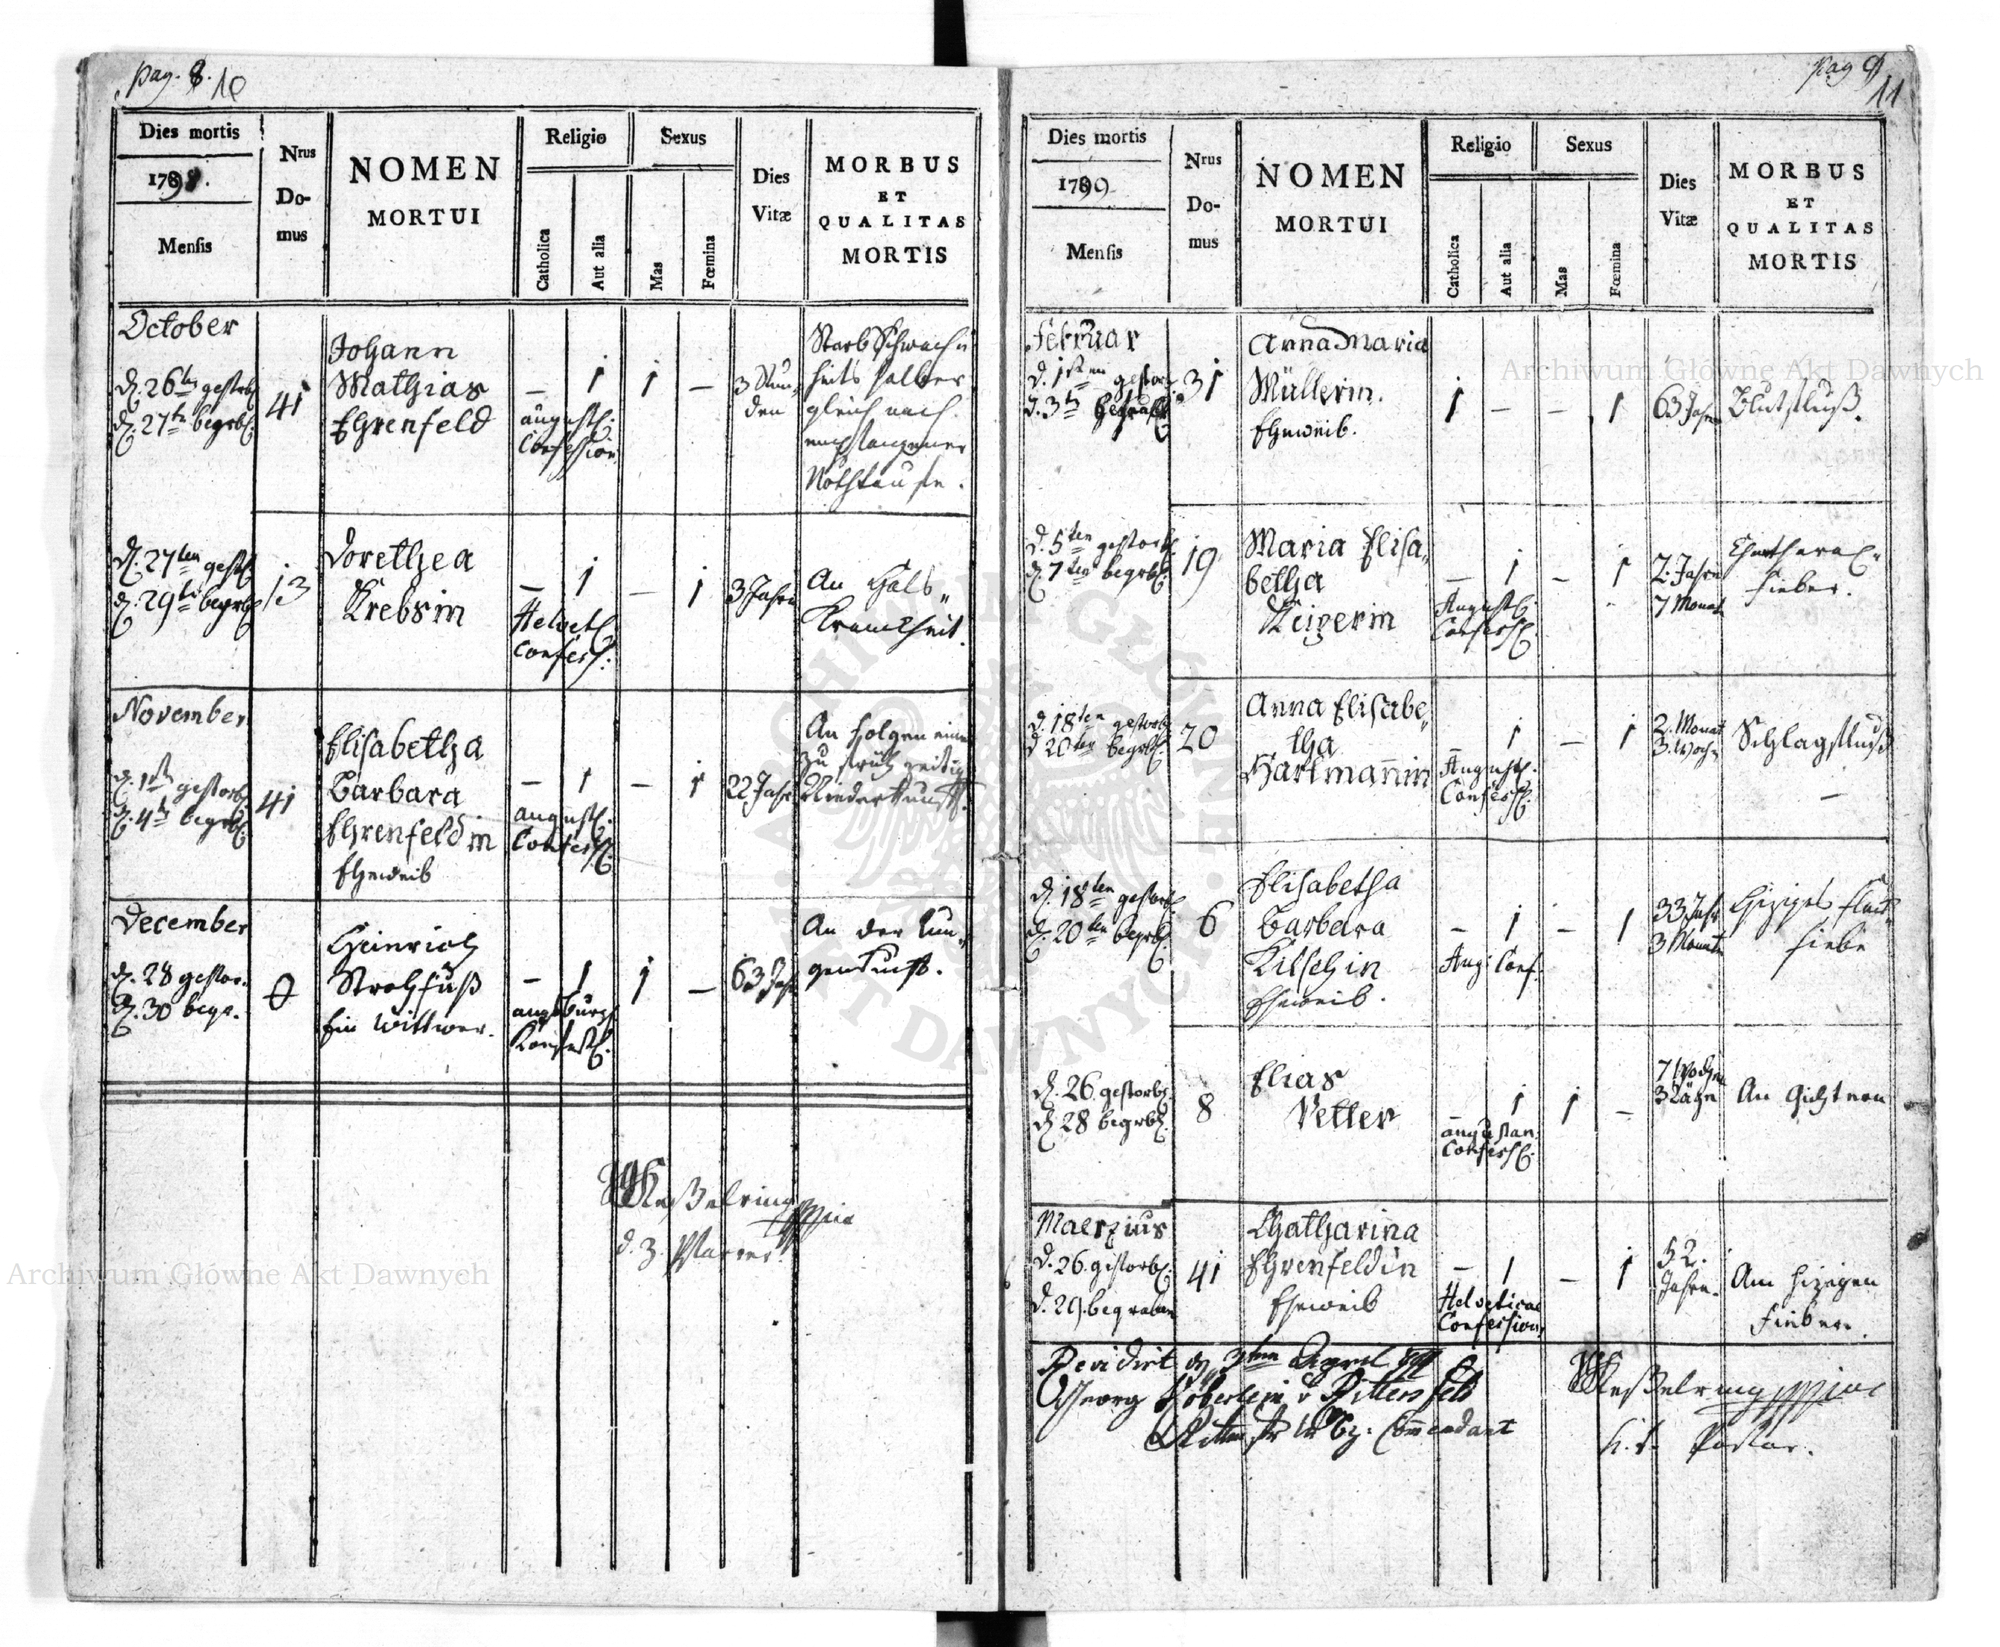 pag. 8. 10
Dies mortis
1798.
Mensis
Nrus
Do-
mus
NOMEN
MORTUI
Religio
Catholica
Aut alia
Sexus
Mas
Fœmina
Dies
Vitæ
MORBUS
ET
QUALITAS
MORTIS
October
d. 26ten gestorb.
d. 27te begrb.
41
Johann
Mathias
Ehrenfeld
– 1 1 –
augustl.
Confession
3 Stun-
den
Starb Schwach¨
heits halber
gleich nach
empfangener
Nothtaufe.
d. 27ten gest.
d. 29te begrb.
13
Dorethea
Krebsin
– 1 – 1
Helvetl.
Confess.
3 Jahre
An Hals¨
Krankheit.
November
d. 1ste gestorb.
d. 4te begrb.
41
Elisabetha
Barbara
Ehrenfeldin
Eheweib
– 1 – 1
augustl.
Confess.
22 Jahr
An folgen einer
zu früh zeitig
Niederkunft.
December
d. 28 gestor.
d. 30 begr.
0
Heinrich
Strohfuß
Ein Wittwer.
– 1 1 –
augsburg.
Confess.
63 Jahr
An der Lun¨
gensucht.
Weßelring
d. z. Pfarrer.
pag 9
11
Dies mortis
1799
Mensis
Nrus
Do-
mus
NOMEN
MORTUI
Religio
Catholica
Aut alia
Sexus
Mas
Fœmina
Dies
Vitæ
MORBUS
ET
QUALITAS
MORTIS
Februar
d. 1sten gestor.
d. 3te begrab.
31
Anna Maria
Müllerin.
Eheweib.
1 – – 1
63 Jahre
Blutfluß.
d. 5ten gestorb.
d. 7ten begrb.
19
Maria Elisa¨
betha
Keigerin
– 1 – 1
Augustl.
Confess.
2. Jahre
7 Monat
Fieber.
d. 18ten gestorb.
d 20ten begrb.
20
Anna Elisabe¨
tha
Hartmannin
– 1 – 1
Augustl.
Confess.
2. Monat
3. Woch
Schlagfluß
–
d. 18ten gestorb.
d. 20ten begrb.
6
Elisabetha
Barbara
Kitschin
Eheweib.
– 1 – 1
Aug: Conf.
33 Jahr
3 Monate
Hiziges
fieber
d. 26. gestorb.
d. 28 begrb.
8
Elias
Vetter
– 1 1 –
augustan.
Confess.
7 Wochen
3 Täge
An Gichtern
Maerzius
d. 26. gestorb.
d. 29. begraben
41
Chatharina
Ehrenfeldin
Eheweib
– 1 – 1
Helvetical
Confession
52.
Jahre.
Am hizigen
Fieber.
Revidirt d. 3ten April 799
Georg Hoberlein v Rittersfeld
Commendant
Weßelring
h. t. Pastor.
Archiwum Główne Akt Dawnych
Archiwum Główne Akt Dawnych
ARCHIWUM GŁÓWNE AKT DAWNYCH